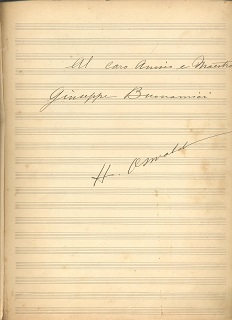 Al caro Amico e Maestro
Giuseppe Buonamici
H. Oswald